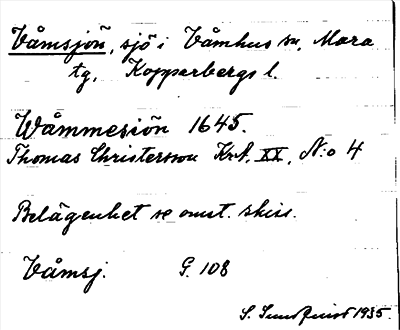 Våmsjön, sjö i Våmhus sn, Mora
tg, Kopparbergs l.
Wåmmesiön 1645.
Thomas Christersson Krt. XX, N:o 4
Belägenhet se omst. skiss.
Våmsj. G. 108
S. Sundquist 1935.